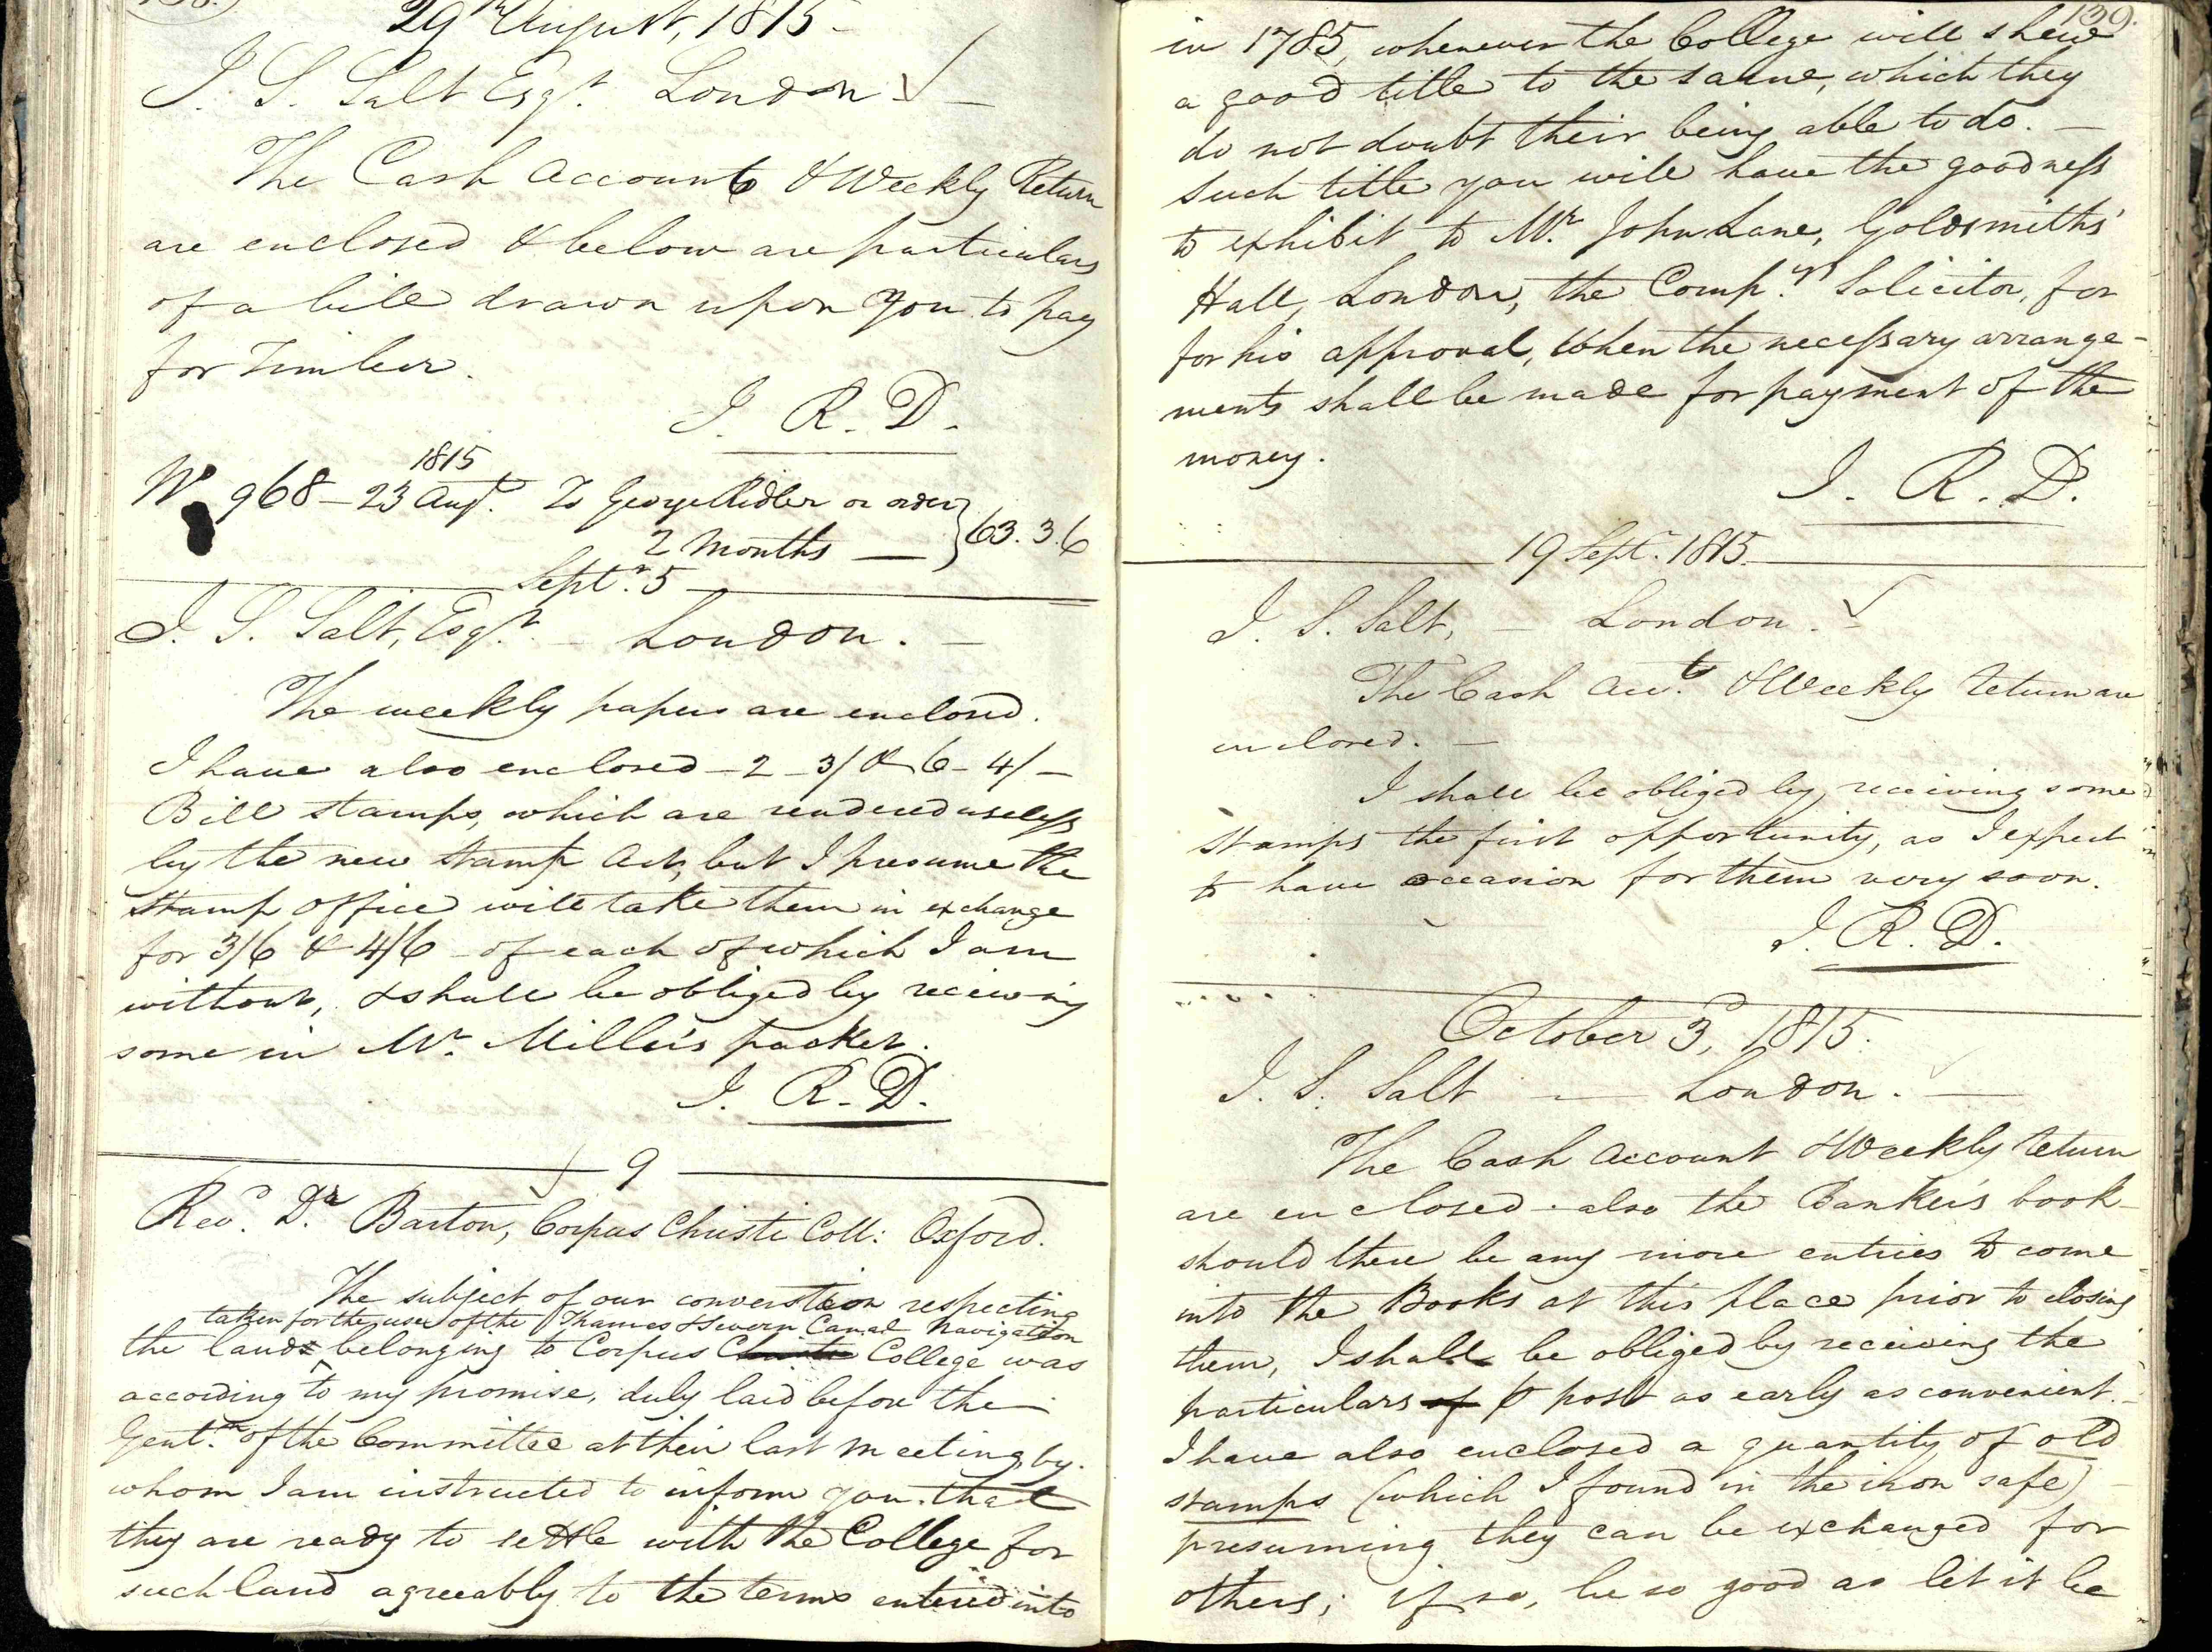 138.
29th August, 1815 -
J. S. Salt Esqr. London -
The Cash Accounts & Weekly Return
are enclosed & below are particulars
of a bill drawn upon you to pay
for Timber.
J. R. D.
1815
No 968 - 23 Augt. To George Ridler or order
2 Months — } 63. 3. 6
Septr. 5
J. S. Salt, Esqr. - London. -
The weekly papers are enclosed.
I have also enclosed - 2 - 3/ & 6 - 4/ -
Bill stamps, which are rendered useless
by the new Stamp Act, but I presume the
Stamp office will take them in exchange
for 3/6 & 4/6 - of each of which I am
without, & shall be obliged by receiving
some in Mr. Miller's packet.
J. R. D.
9
Revd. Dr. Barton, Corpus Christi Coll: Oxford.
The subject of our converstion respecting
taken for the use of the Thames & Severn Canal Navigation
the lands belonging to Corpus Christi College was
according to my promise, duly laid before the
Gentn. of the Committee at their last Meeting, by
whom I am instructed to inform you that
they are ready to settle with the College for
such land agreeably to the terms entered into
139.
in 1785, whenever the College will shew
a good title to the same, which they
do not doubt their being able to do. -
Such title you will have the goodness
to exhibit to Mr. John Lane, Goldsmiths'
Hall, London, the Compys. Solicitor, for
for his approval, When the necessary arrange-
ments shall be made for payment of the
money.
J. R. D.
19 Sept. 1815.
J. S. Salt, - London. -
The Cash Accts. & Weekly return are
enclosed. -
I shall be obliged by receiving some
stamps the first opportunity, as I expect
to have occasion for them very soon.
J. R. D.
October 3, 1815.
J. S. Salt - London. -
The Cash Account & Weekly return
are enclosed - also the Banker's book -
should there be any more entries to come
into the Books at this place prior to closing
them, I shall be obliged by receiving the
particulars of P post as early as convenient. -
I have also enclosed a quantity of old
stamps (which I found in the iron safe) -
presuming they can be exchanged for
others; if so, be so good as let it be